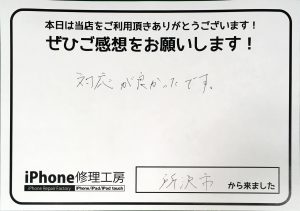 本日は当店をご利用頂きありがとうございます!
ぜひご感想をお願いします!
対応が良かったです。
iPhone修理工房
iPhone Repair Factory iPhone/iPad/iPod touch
所沢市 から来ました